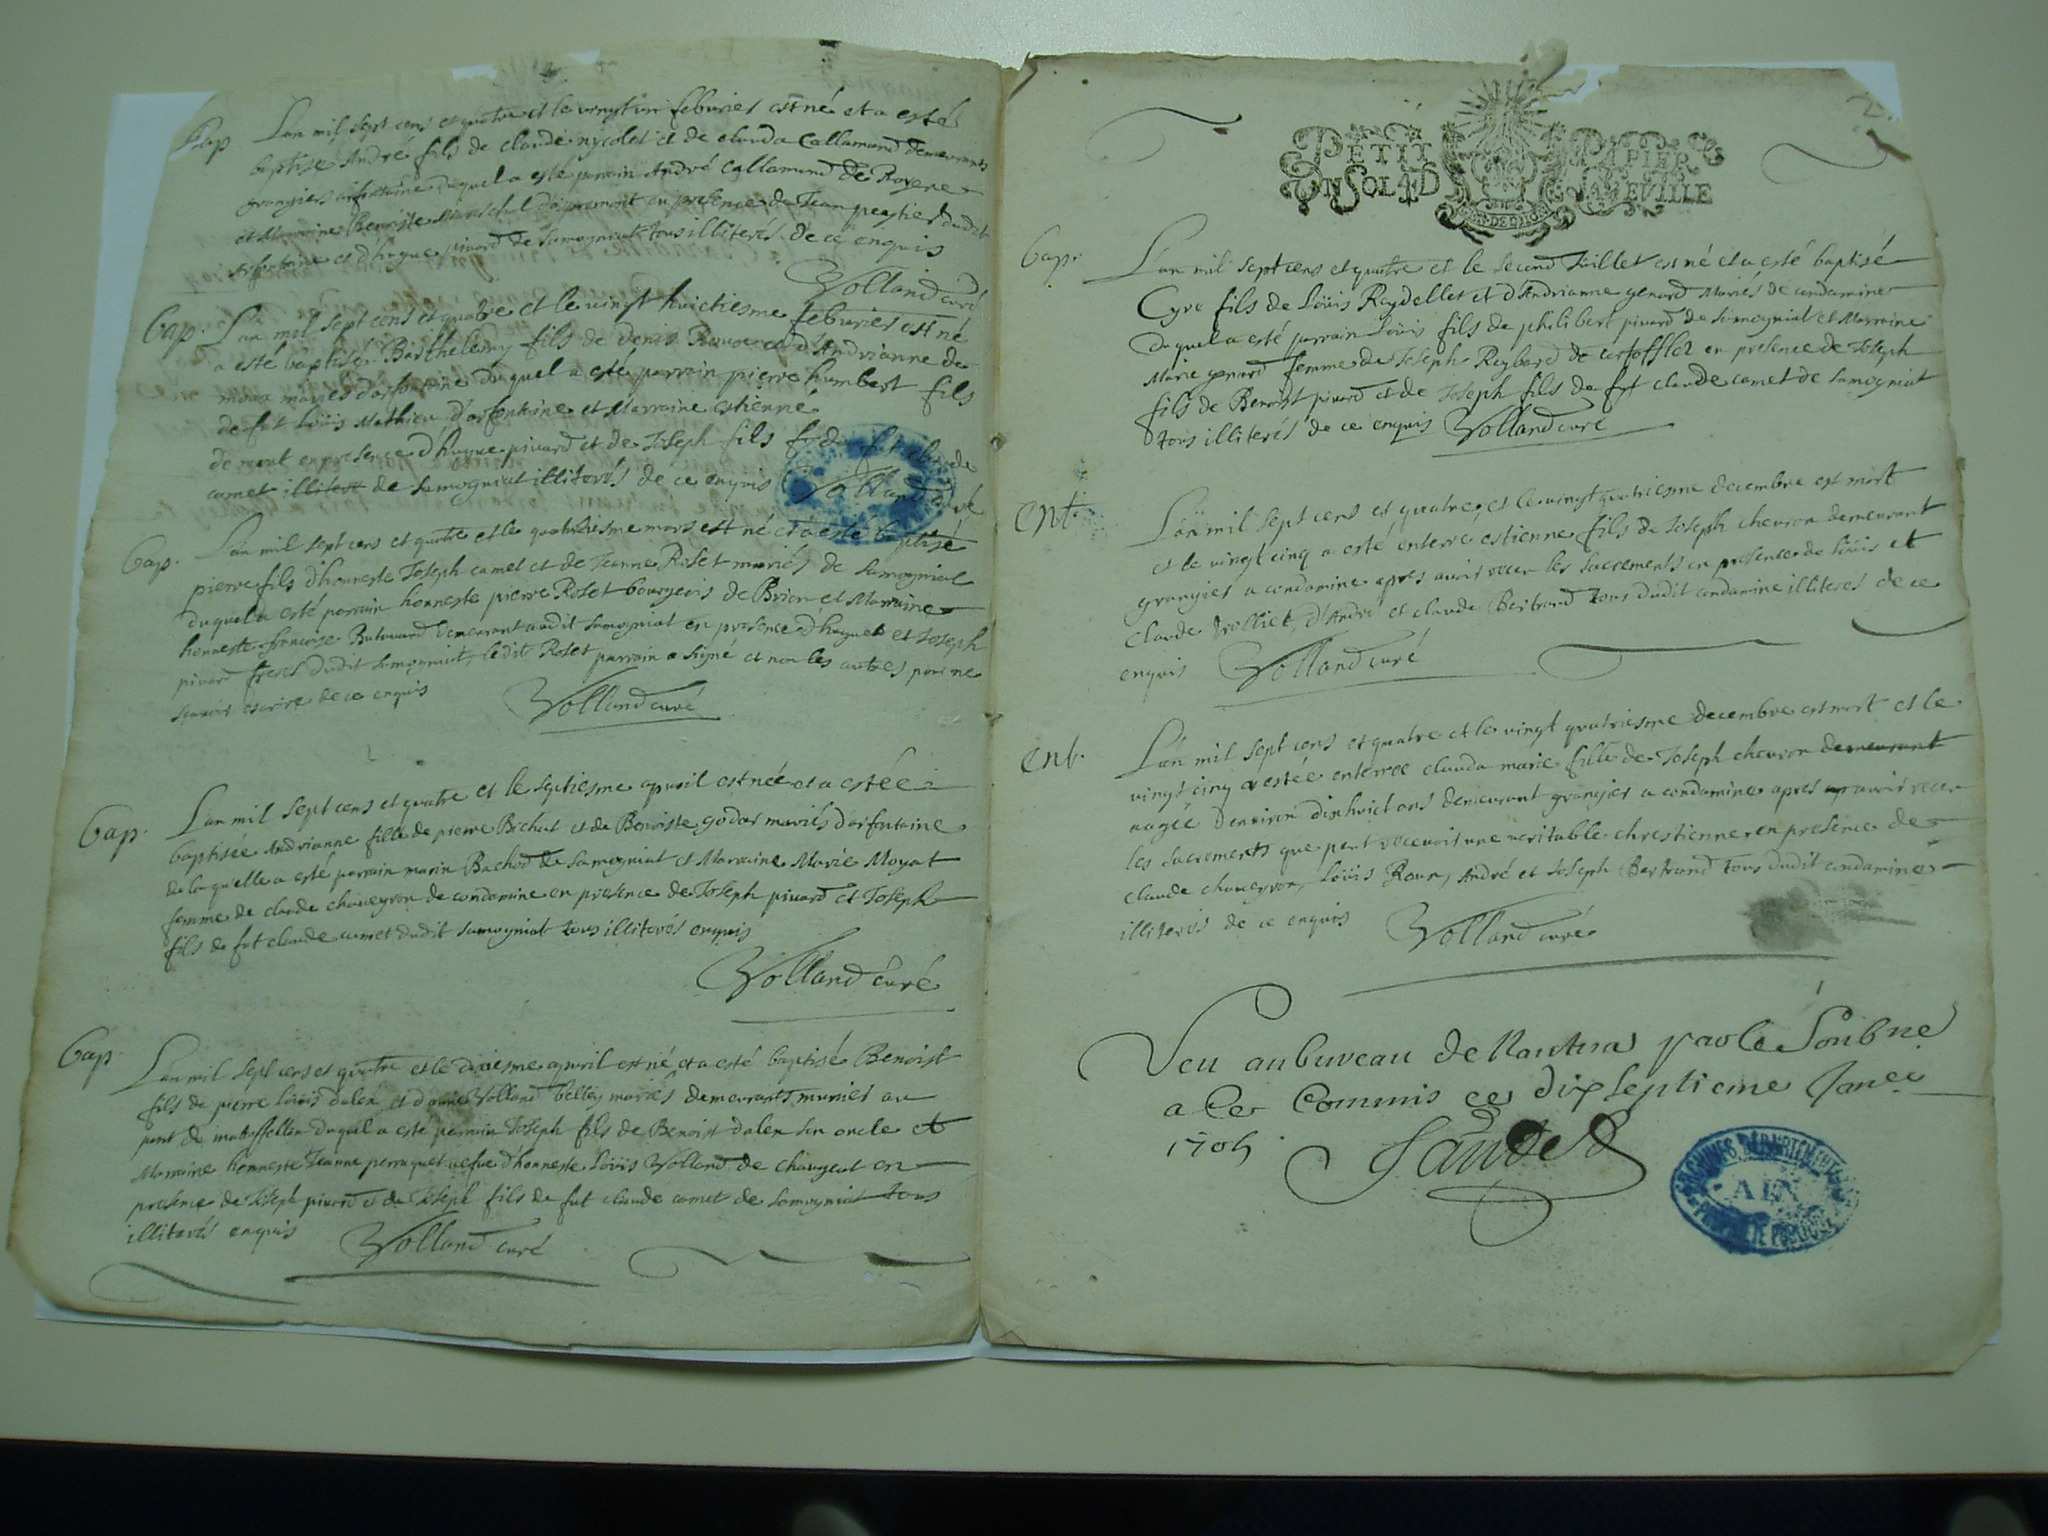 Bap
L'an mil sept cens et quatre et le vingt un feburier est né et a esté
baptisé André fils de claude nycolet et de clauda Callamand demeurants
grangiers arfontaine duquel a esté parrain André Callamand de Royere
et Marraine Benoiste Mareschal en presence de Jean dudit
Arfontaine et d'hugue pivard de Samogniat tous illiterés de ce enquis
Volland curé
Bap.
L'an mil sept cens et quatre et le vingt huictiesme feburier est né
a esté baptisé Barthelemy fils de denis et d'Andrianne de
mariés d'arfontaine duquel a esté parrain pierre humbert fils
de fut Loüis Mathieu d'arfontaine et Marraine estienne
de mont en presence d'hugue pivard et de Joseph fils de fut claude
camet illiteré de Samogniat illiterés de ce enquis Volland curé
Bap.
L'an mil sept cens et quatre et le quatriesme mars est né et a esté baptisé
pierre fils d'honneste Joseph camet et de Jeanne Rolet mariés de Samogniat
duquel a esté parrain honneste pierre Rolet bourgeois de Brion et Marraine
honneste francoise demeurant audit Samogniat en presence d'hugue et Joseph
pivard freres dudit Samogniat, ledit Rolet parrain a signé et non les autres pour ne
scavoir escrire de ce enquis
Volland curé
Bap.
L'an mil sept cens et quatre et le septiesme apvril est née et a estée
baptisée Andrianne fille de pierre Bachod et de Benoiste godar mariés d'arfontaine
de laquelle a esté parrain marin Bachod de Samogniat et Marraine Marie Moyat
femme de claude chaveyron de condamine en presence de Joseph pivard et Joseph
fils de fut claude camet dudit Samogniat tous illiterés enquis
Volland curé
Bap.
L'an mil sept cens et quatre et le dixiesme apvril est né et a esté baptisé Benoist
fils de pierre Loüis dalen et d' Volland mariés demeurants munier au
pont de duquel a esté parrain Joseph fils de Benoist dalen son oncle et
Marraine honneste Jeanne perraquet vefve d'honneste Loüis Volland de changeat en
presence de Joseph pivard et de Joseph fils de fut claude camet de Samogniat tous
illiterés enquis Volland curé
2.
PETIT PAPIER
UN SOL 4 D LA FEUILLE
Bap.
L'an mil sept cens et quatre et le second Juillet est né et a esté baptisé
Cyre fils de Loüis Reydellet et d'Andrianne genard Mariés de condamine
duquel a esté parrain Loüis fils de philibert pivard de Samogniat et Marraine
Marie genard femme de Joseph Reybard de en presence de Joseph
fils de Benoist pivard et de Joseph fils de fut claude camet de Samogniat
tous illiterés de ce enquis Volland curé
Ent.
L'an mil sept cens et quatre, et le vingt quatriesme decembre est mort
et le vingt cinq a esté enterré estienne fils de Joseph chevron demeurant
grangier a condamine apres avoir receu les sacrements en presence de Loüis et
claude d'André et claude Bertrand tous dudit condamine illiterés de ce
enquis Volland curé
Ent.
L'an mil sept cens et quatre et le vingt quatriesme decembre est mort et le
vingt cinq a estée enterree clauda marie fille de Joseph chevron demeurant
aagée d'environ dixhuict ans demeurant grangier a condamine apres avoir receu
les sacrements que peut recevoir une veritable chrestienne en presence de
claude chaveyron, Loüis Roux, André et Joseph Bertrand tous dudit condamine
illiterés de ce enquis Volland curé
Veu au bureau de Nantua par le Soubne
a ce Commis ce dix septieme Janer
1705
ARCHIVES DEPARTEMENTALES
AIN
PROPRIETE PUBLIQUE